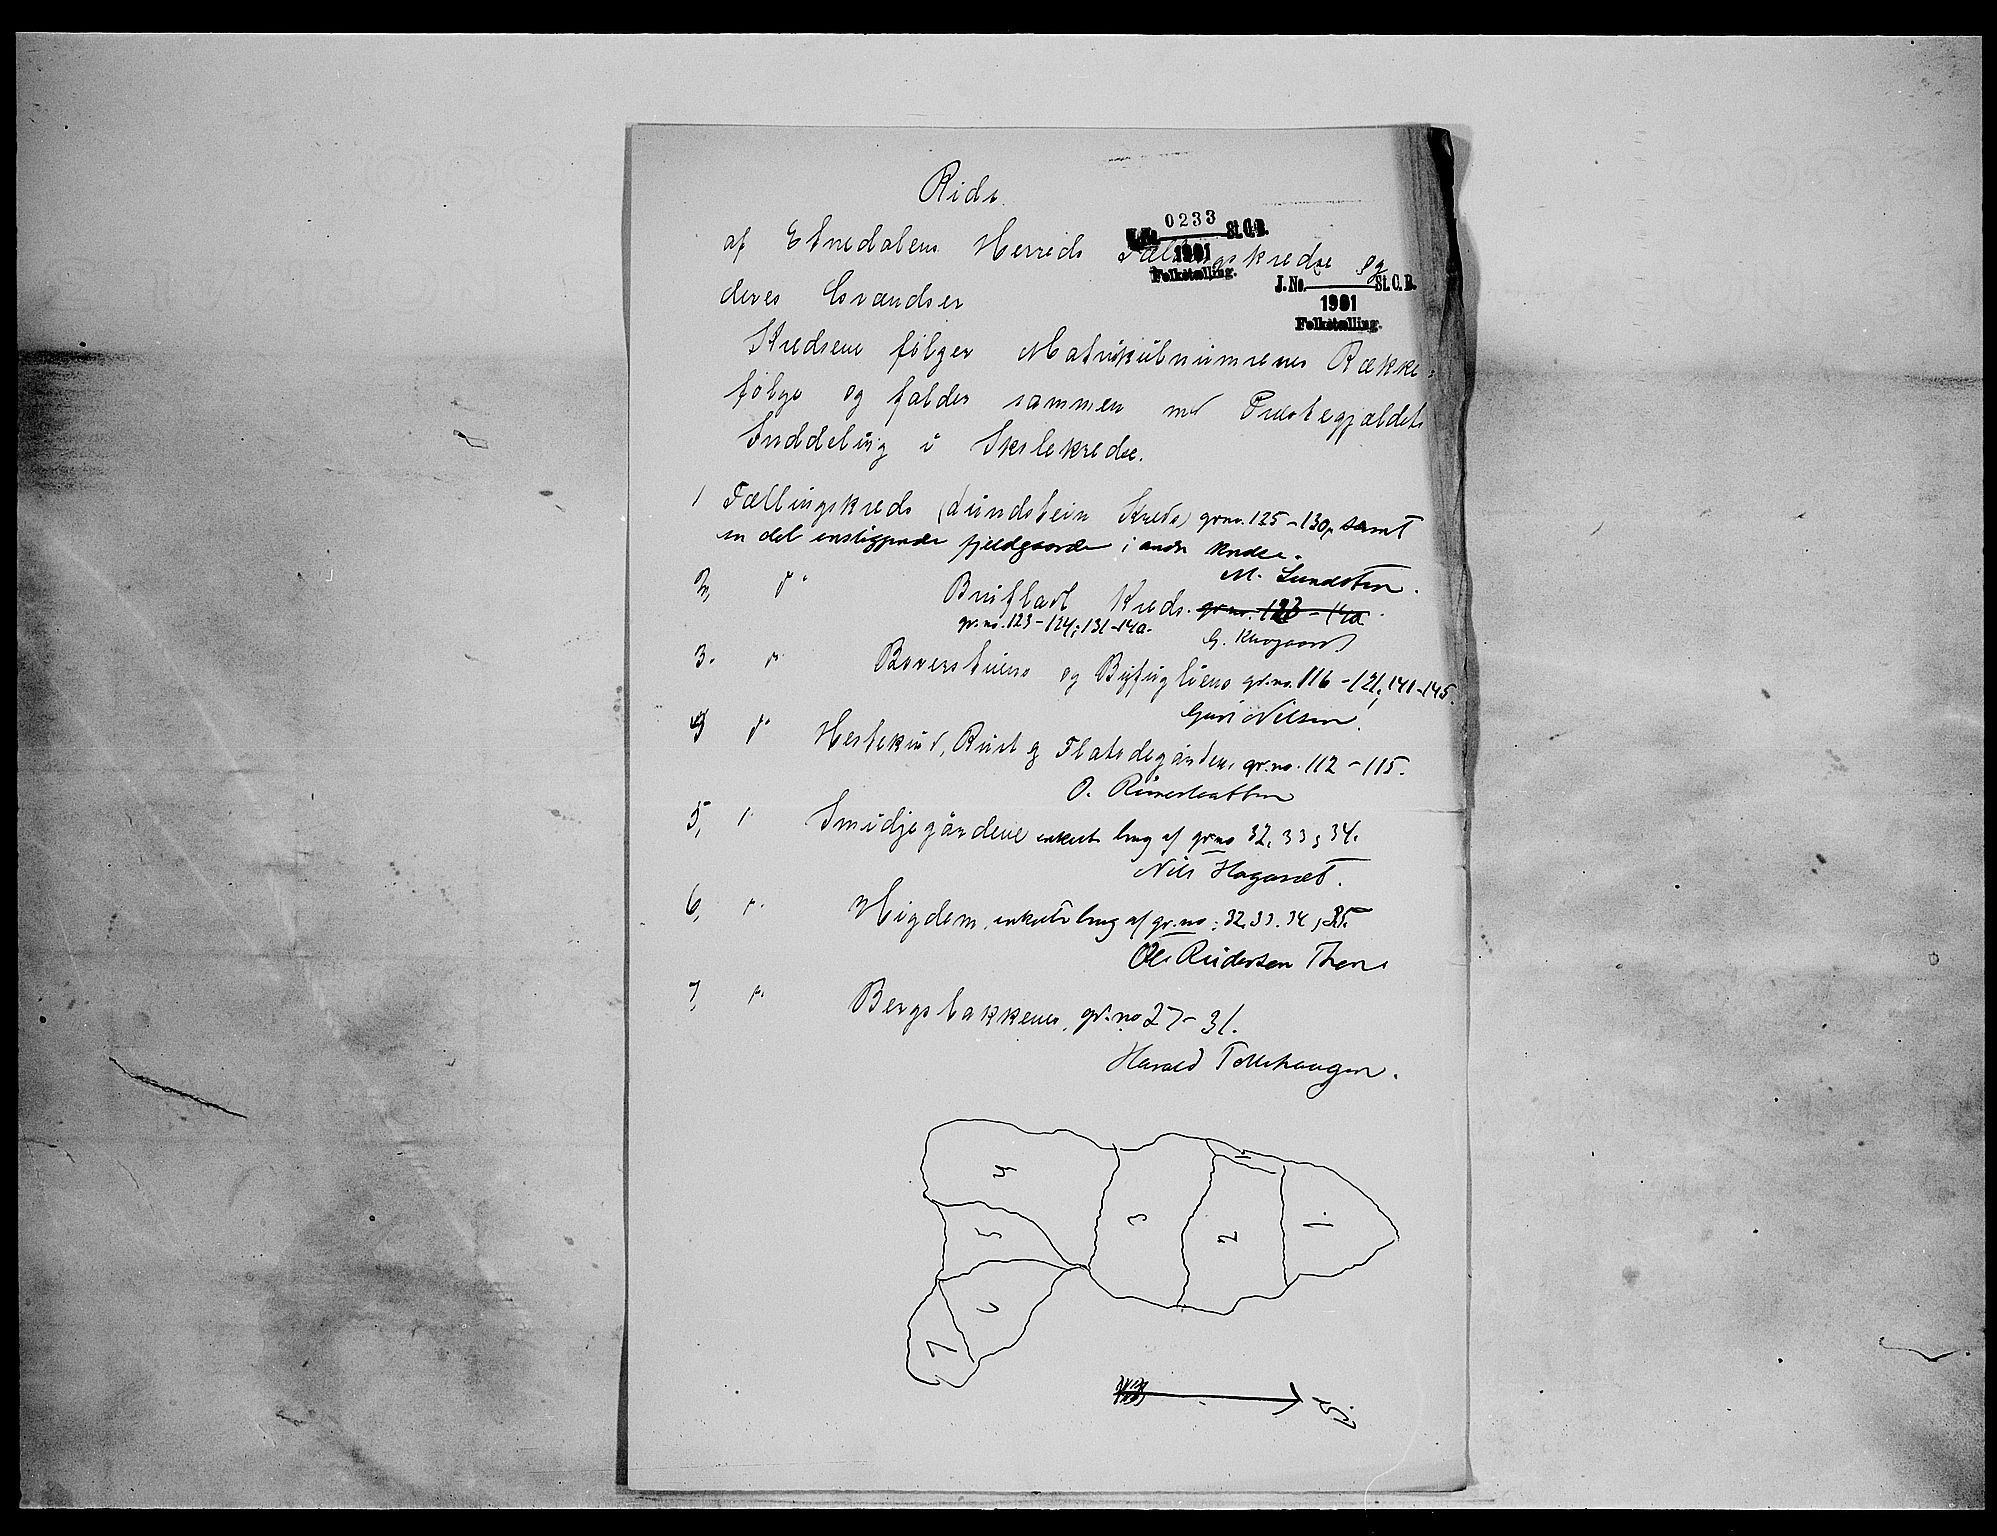 Rids
af Etnedalens Herreds Tællingskredse og
0233
J. No. St. C. B.
1901
Folketælling.
deres Grændser
J. No. St. C. B.
1901
Folketælling.
Kredsene følger Matrikülnumrenes Række-
følge og falder sammen med Præstegjældets
Inddeling i Skolekredse.
1 Tællingskreds (Lündstein Kreds) gr.no. 125-130, samt
en del enstliggende fjeldgaarde i andre kredse.
M. Lundstein.
2, do Brüfladt Kreds. gr.no. 123-140
gr.no. 123-124, 131-140.
G.
3. do og Byfuglien gr.no. 116-121, 141-145.
Guri Nilsen.
4 do Rüst og gr.no. 112-115.
O.
5, Smidjegårdene enkelt brug af gr.no 32, 33, 34.
Nils Hagaset.
6, do Høgdem, enkelte brug af gr.no: 32, 33. 34, 35.
Ole Rüdersen Thon
7, do Bergsbakkene, gr.no 27-31.
Harald Tollehaugen.
4
3
1
2
1
5
6
7